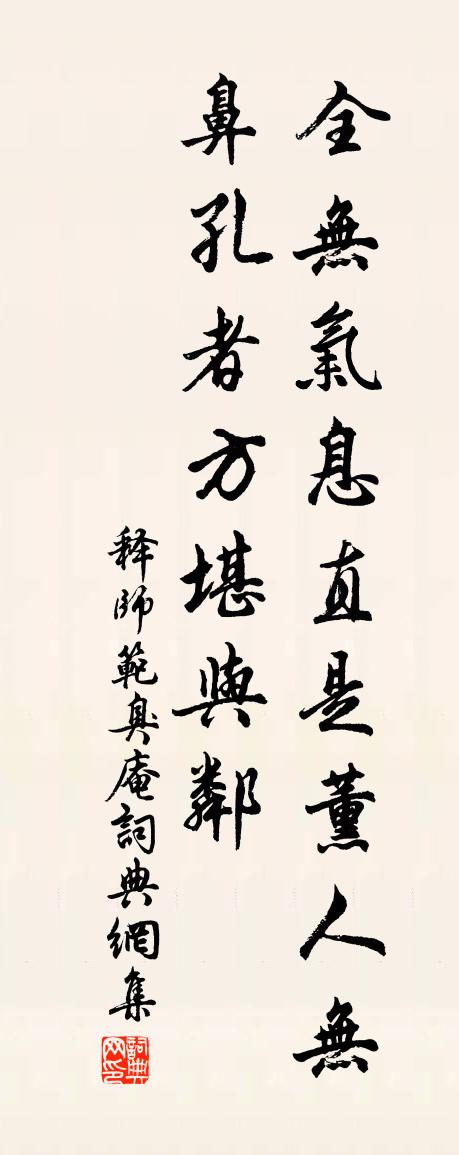 全無氣息直是薰人無
鼻孔者方堪與鄰
释師範臭庵詞典網集
詞典
网印